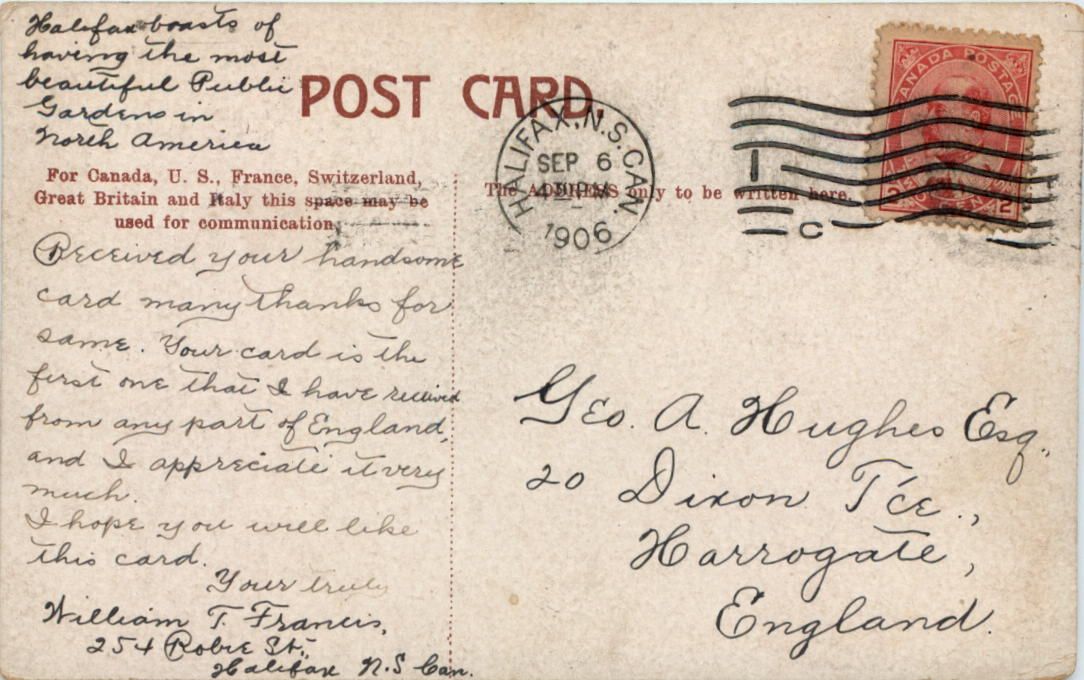 Halifax boasts of
having the most
beautiful Public
Gardens in
North America
POST CARD
For Canada, U. S., France, Switzerland,
Great Britain and Italy this space may be
used for communication.
The ADDRESS only to be written here.
HALIFAX, N.S. CAN.
SEP 6
1906
1
C
CANADA POSTAGE
2 2
Received your handsome
card many thanks for
same. Your card is the
first one that I have received
from any part of England,
and I appreciate it very
much.
I hope you will like
this card.
Your truly
William T. Francis,
254 Robie St.,
Halifax N.S Can.
Geo. A. Hughes Esq.
20 Dixon T'ce.,
Harrogate,
England.